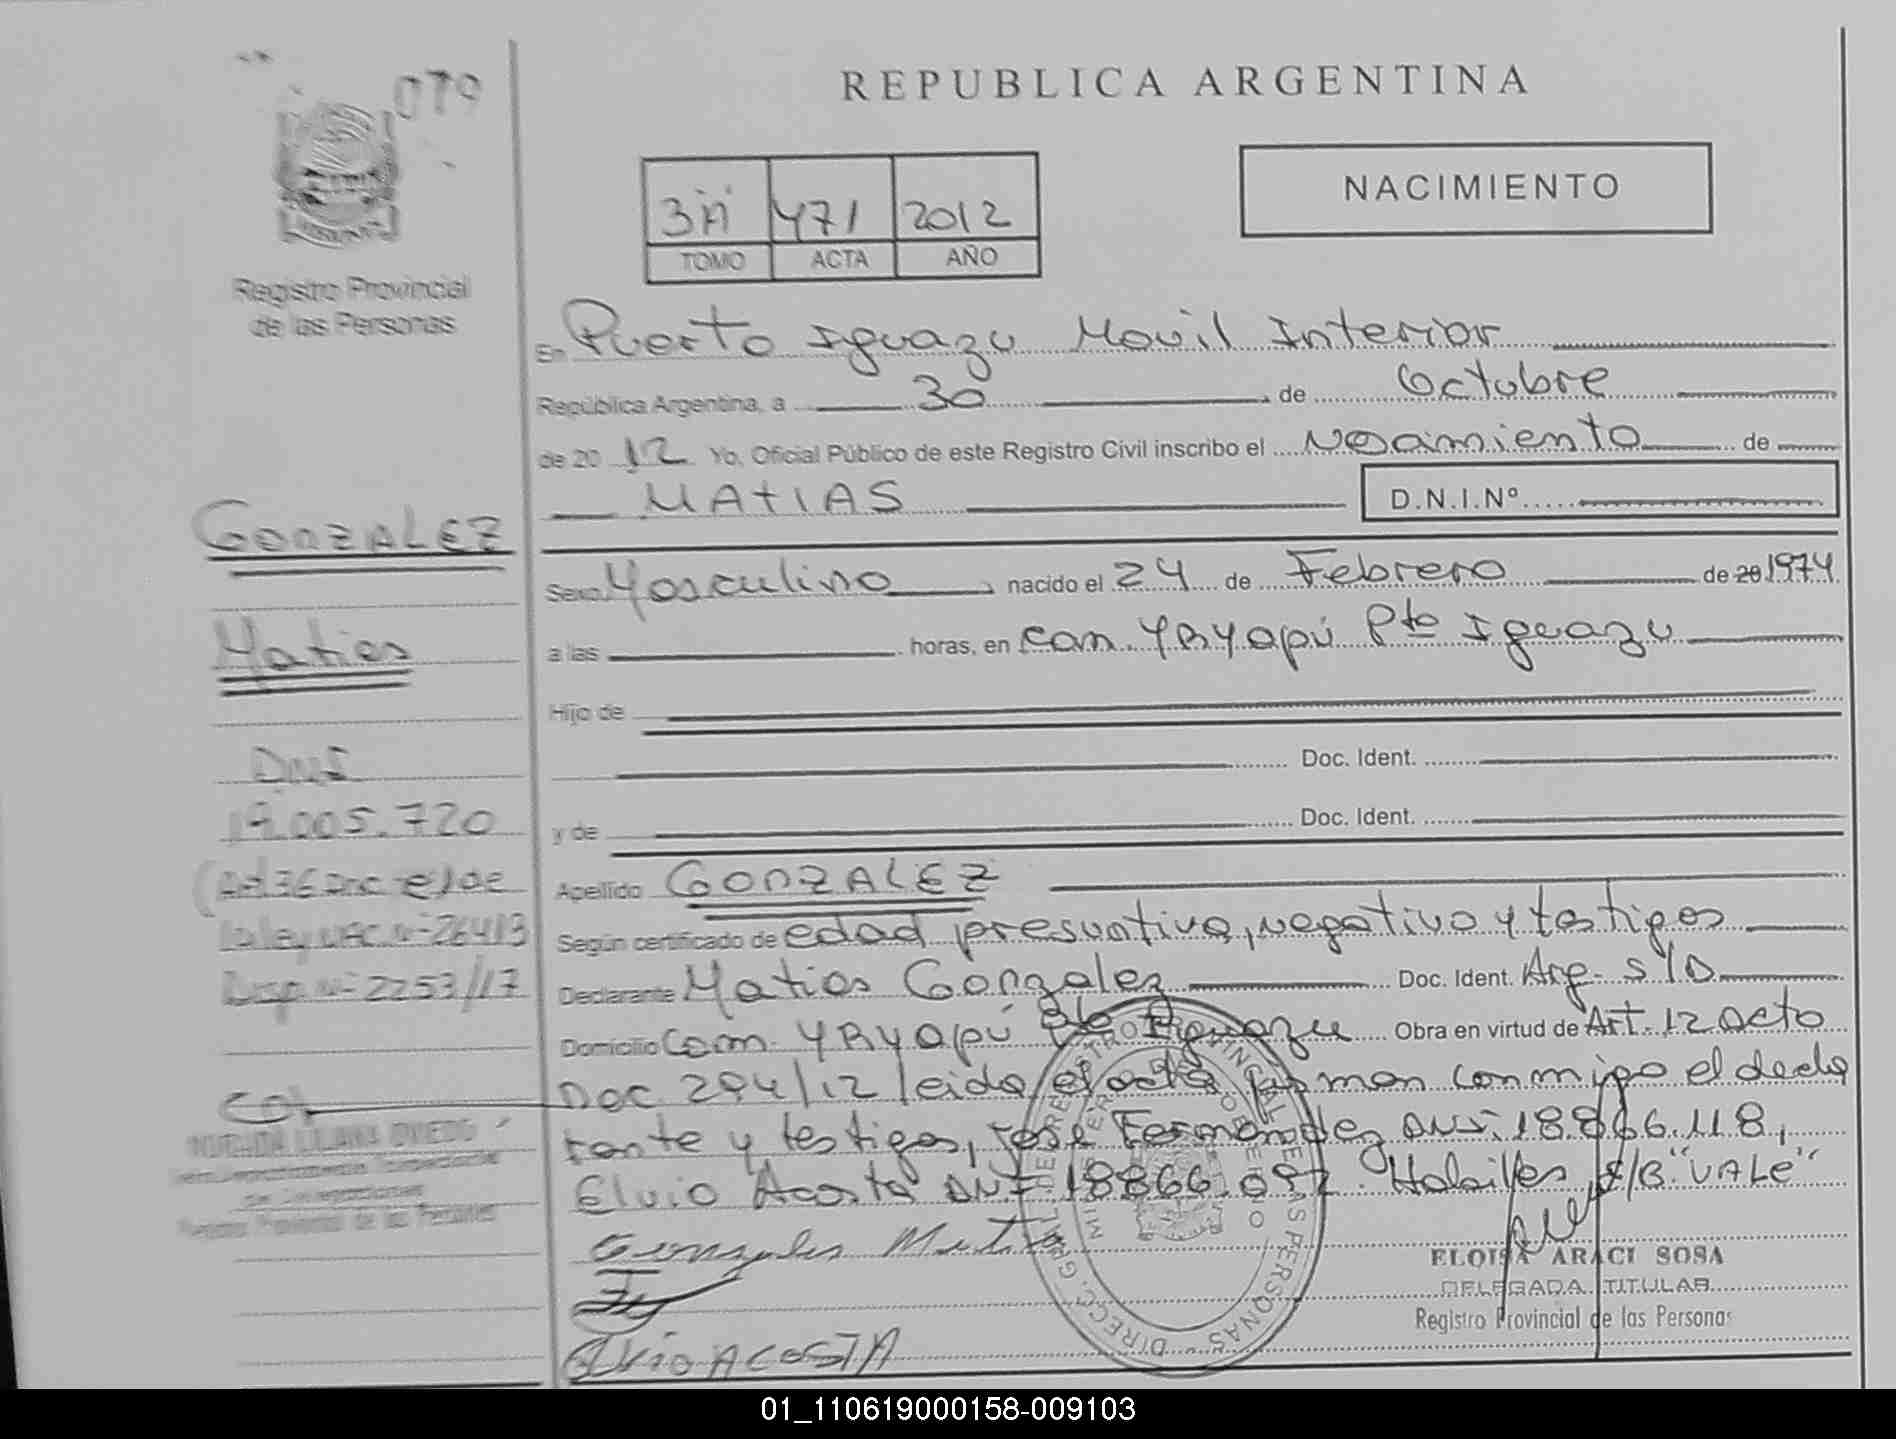 079
REPUBLICA ARGENTINA
NACIMIENTO
3"A" 471 2012
TOMO ACTA AÑO
Registro Provincial
de las Personas
En Puerto Iguazu Movil Interior
República Argentina, a 30 de Octubre
de 2012 Yo, Oficial Público de este Registro Civil inscribo el Nacimiento de
MATIAS D.N.I.Nº
Sexo Masculino nacido el 24 de Febrero de 20 1974
a las horas, en Com. YRYapú Pto Iguazu
Hijo de
Doc. Ident.
y de Doc. Ident.
Apellido GONZALEZ
Según certificado de edad presuntiva, negativo y testigos
Declarante Matias Gonzalez Doc. Ident. Arg. S/D
Domicilio Com. YRYapú Pto Iguazu Obra en virtud de Art. 12 Dcto
Doc. 294/12 leida el acta firman conmigo el decla
rante y testigos, José Fernandez DNI: 18.866.118,
Elvio Acosta DNI 18866.097. Habiles, S/B "VALE"
Gonzalez Mati
Elvio ACOSTA
ELOISA ARACI SOSA
DELEGADA TITULAR
Registro Provincial de las Personas
GONZALEZ
Matias
DNI
19.005.720
(Art 36 inc e) de
la ley NAC. Nº 26413
Disp. Nº 2253/17
LILIANA OVIEDO
Registro Provincial de las Personas
01_110619000158-009103